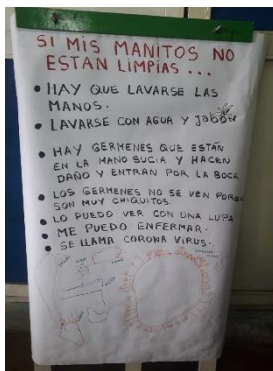 SI MIS MANITOS NO
ESTAN LIMPIAS ...
• HAY QUE LAVARSE LAS
MANOS.
• LAVARSE CON AGUA Y jabón
• HAY GERMENES QUE ESTÁN
EN LA MANO SUCIA Y HACEN
DAÑO Y ENTRAN POR LA BOCA
• LOS GERMENES NO SE VEN PORQUE
SON MUY CHIQUITOS.
• LO PUEDO VER CON UNA LUPA
• ME PUEDO ENFERMAR.
• SE LLAMA CORONA VIRUS.